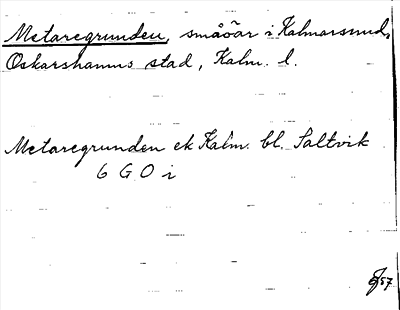 Metaregrunden, småöar i Kalmarsund,
Oskarshamns stad, Kalm. l.
Metaregrunden ek Kalm. bl. Saltvik
6 G O i
57